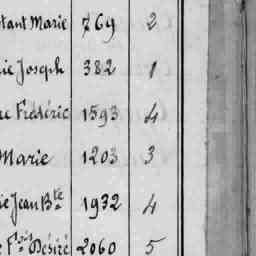 tant Marie 769 2
ie Joseph 382 1
re Frédéric 1593 4
Marie 1203 3
ie Jean Bte 1932 4
e Fois Désiré 2060 5